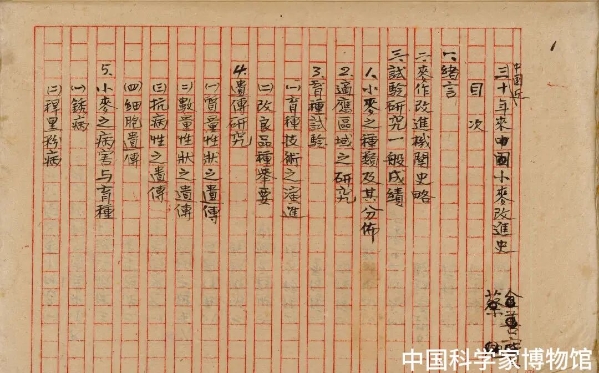 1
中国近
三十年來中國小麥改進史
金善
蔡
目次
一、緒言
二、麥作改進機関史略
三、試驗研究一般成績
1、小麥之種類及其分佈
2、適應區域之研究
3、育種試驗
(一)育種技術之演進
(二)改良品種舉要
4、遺傳研究
(一)質量性狀之遺傳
(二)數量性狀之遺傳
(三)抗病性之遺傳
(四)細胞遺傳
5、小麥之病害与育種
(一)銹病
(二)稈黑粉病
中国科学家博物馆